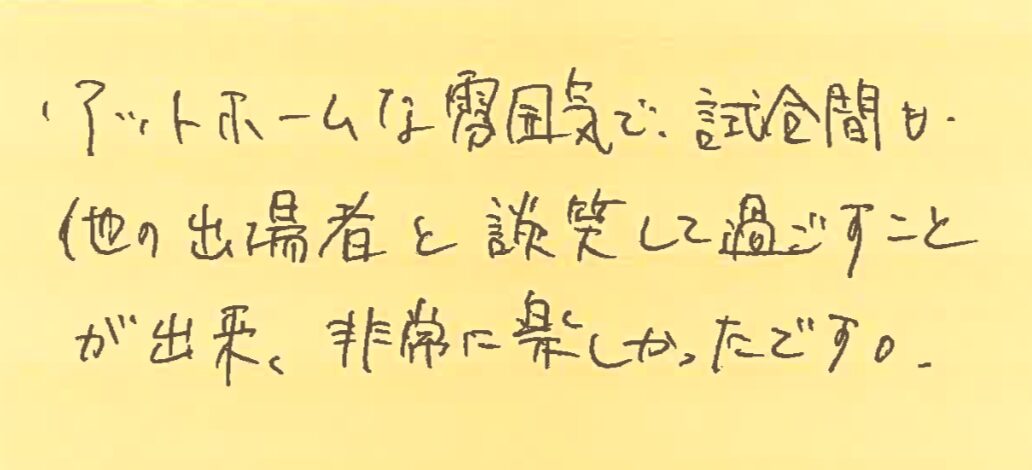 ・アットホームな雰囲気で、試合間も
他の出場者と談笑して過ごすこと
が出来、非常に楽しかったです。